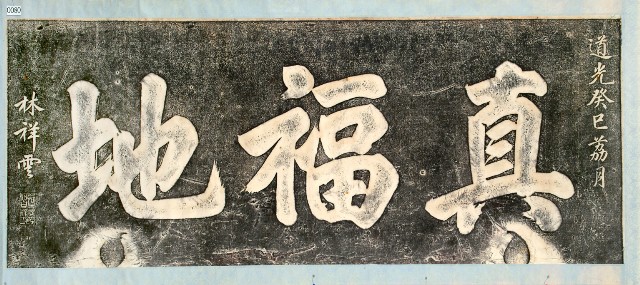 道光癸巳荔月
真福地
林祥雲
0090